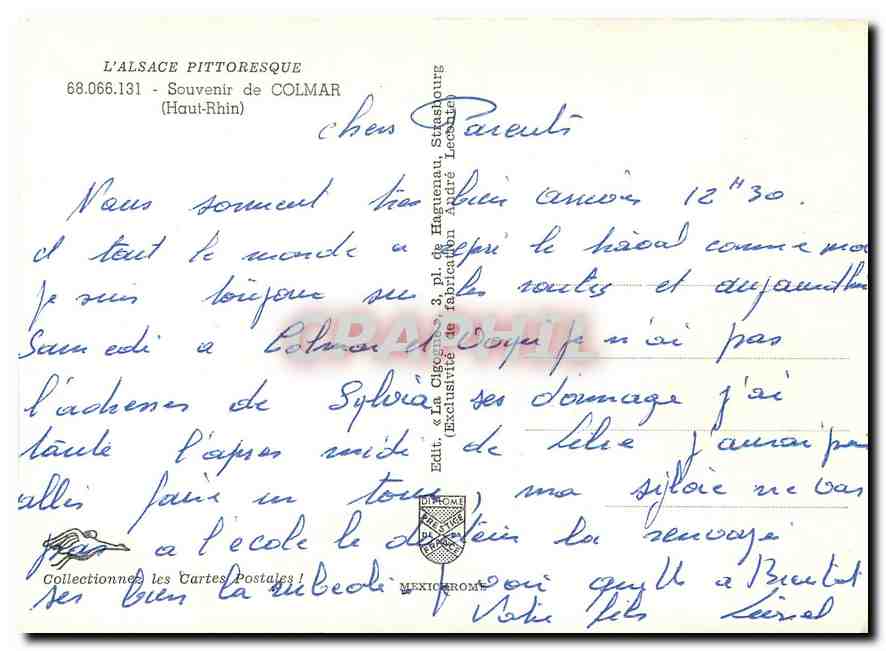 L'ALSACE PITTORESQUE
68.066.131 - Souvenir de COLMAR
(Haut-Rhin)
chers Parents
Nous somment tres bien arrivés 12 H 30.
et tout le monde a repri le travail comme moi
je suis toujours sur les routes et aujourdhui
Samedi a Colmar et je n'ai pas
l'adresses de Sylvia ses dommage j'ai
toute l'apres midi de libre j'aurai pu
allis faire un tour, ma sylvie ne vas
pas a l'ecole le docteur la renvoyé
ses bien la rubeole - quelle a Bientot
Votre fils Lionel
Edit. « La Cigogne », 3, pl. de Haguenau, Strasbourg
(Exclusivité de fabrication André Leconte)
GRAPHIL
DIPLOME
PRESTIGE
DE LA
FRANCE
Collectionnez les Cartes Postales !
MEXICHROME